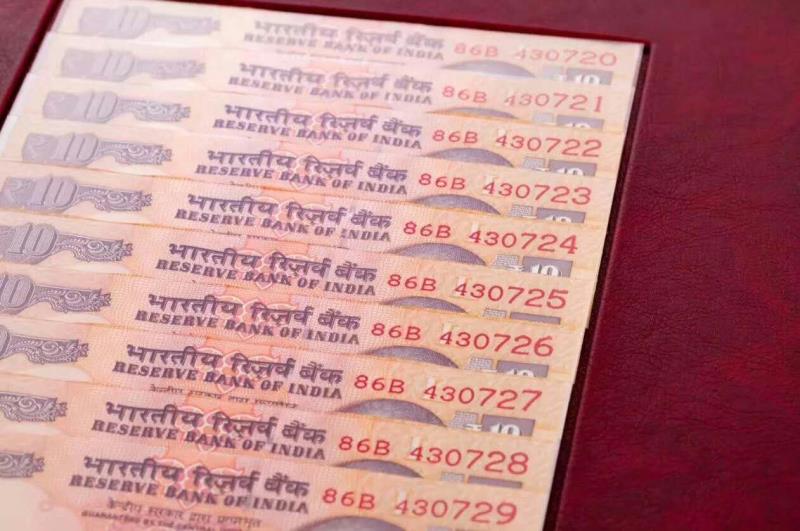 10 भारतीय रिज़र्व बैंक
RESERVE BANK OF INDIA 86B 430720
10 भारतीय रिज़र्व बैंक 10
RESERVE BANK OF INDIA 86B 430721
10 भारतीय रिज़र्व बैंक
RESERVE BANK OF INDIA 86B 430722
10 भारतीय रिज़र्व बैंक
RESERVE BANK OF INDIA 86B 430723
10 भारतीय रिज़र्व बैंक
RESERVE BANK OF INDIA 86B 430724
10 भारतीय रिज़र्व बैंक 10
RESERVE BANK OF INDIA 86B 430725
10 भारतीय रिज़र्व बैंक
RESERVE BANK OF INDIA 86B 430726
भारतीय रिज़र्व बैंक
RESERVE BANK OF INDIA 86B 430727
केन्द्रीय सरकार द्वारा प्रत्याभूत 10
भारतीय रिज़र्व बैंक
RESERVE BANK OF INDIA 86B 430728
भारतीय रिज़र्व बैंक
RESERVE BANK OF INDIA 86B 430729
केन्द्रीय सरकार द्वारा प्रत्याभूत
GUARANTEED BY THE CENTRAL